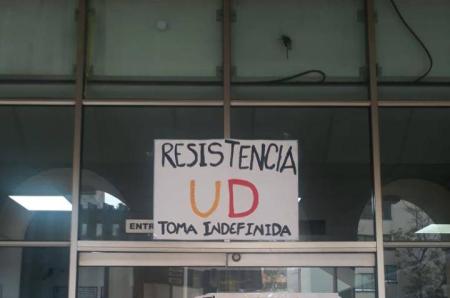 RESISTENCIA
UD
TOMA INDEFINIDA
ENTR